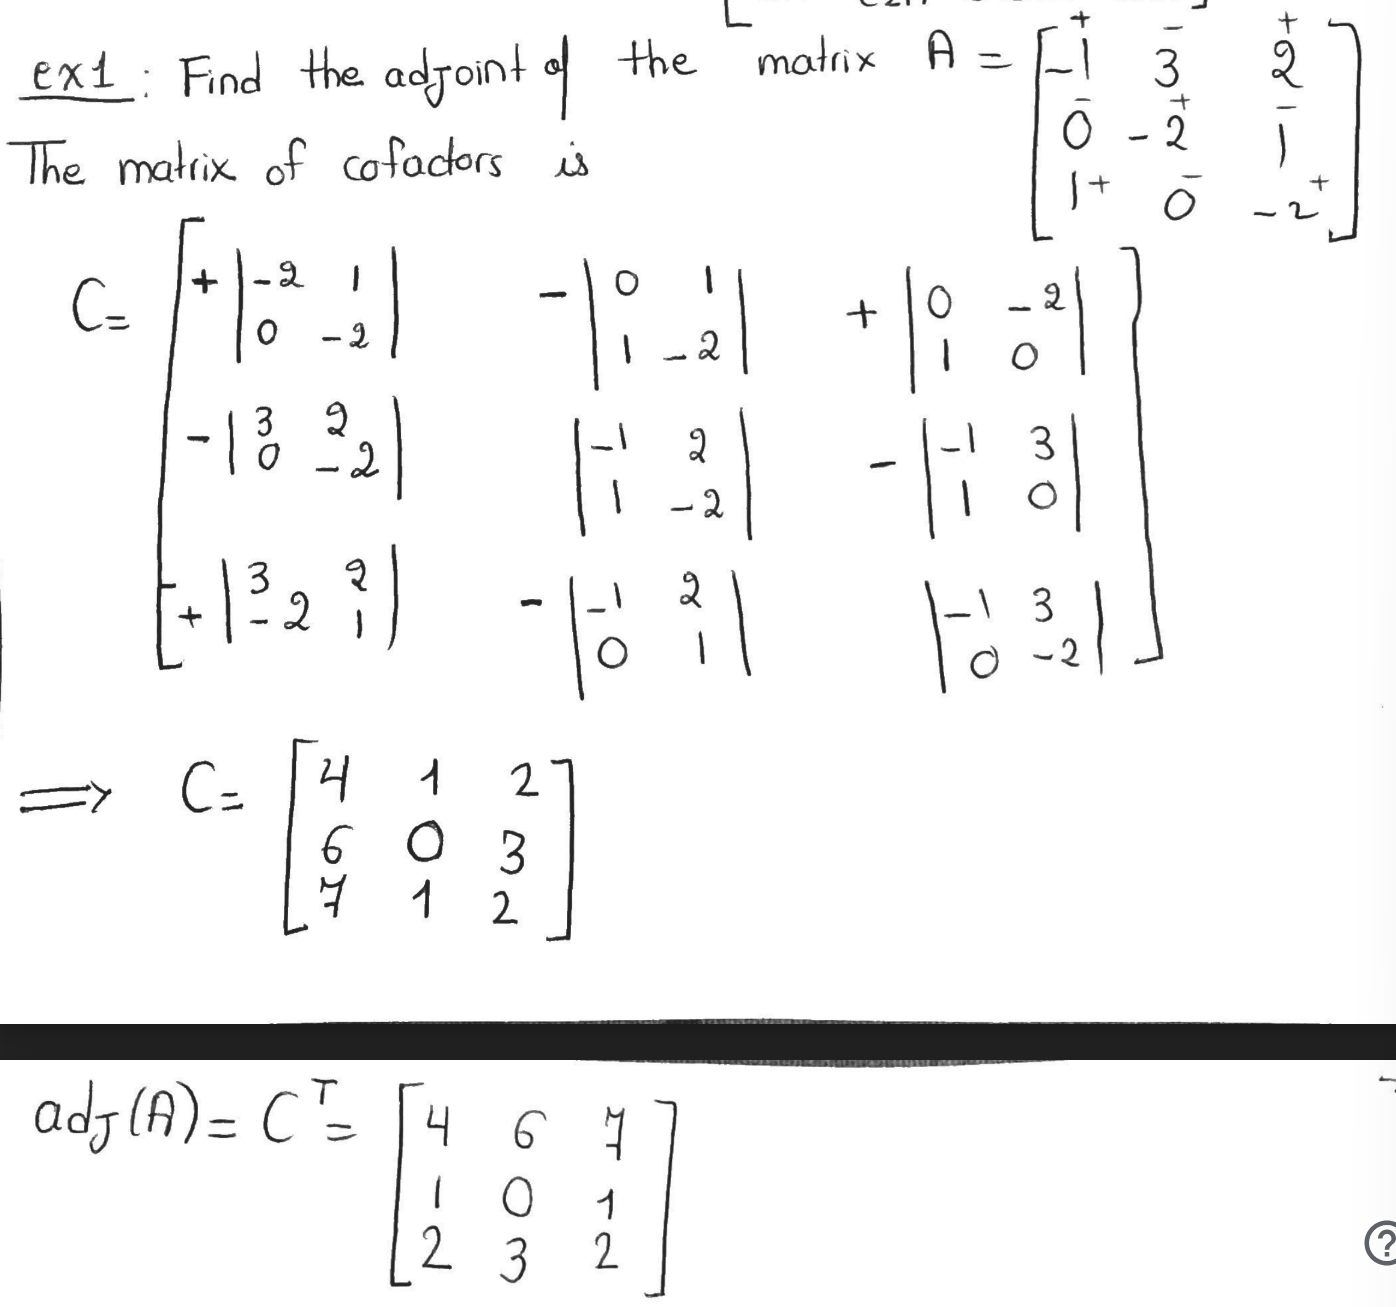 ex1: Find the adjoint of the matrix A = [-1 3 2
0 -2 1
1 0 -2]
+ - +
- + -
+ - +
The matrix of cofactors is
C= [+|-2 1| -|0 1| +|0 -2|
|0 -2| |1 -2| |1 0|
-|3 2| |-1 2| -|-1 3|
|0 -2| |1 -2| |1 0|
+|3 2| -|-1 2| |-1 3|
|-2 1| |0 1| |0 -2|]
⟹ C= [4 1 2
6 0 3
7 1 2]
adj(A) = C^T = [4 6 7
1 0 1
2 3 2]
?